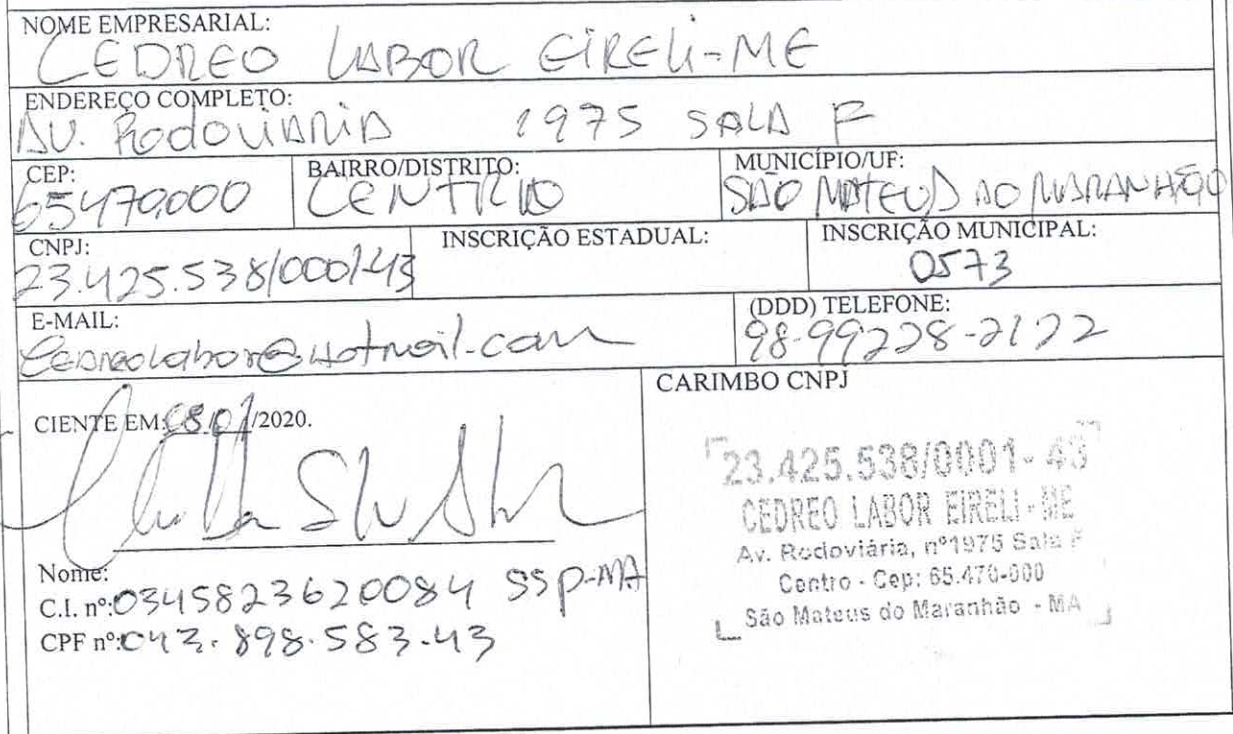 NOME EMPRESARIAL:
CEDREO LABOR EIRELI-ME
ENDEREÇO COMPLETO:
AV. RODOVIARIA 1975 SALA F
CEP:
65470.000
BAIRRO/DISTRITO:
CENTRO
MUNICÍPIO/UF:
SÃO MATEUS DO MARANHÃO
CNPJ:
23.425.538/0001-43
INSCRIÇÃO ESTADUAL:
INSCRIÇÃO MUNICIPAL:
0573
E-MAIL:
Cedreolabor@hotmail.com
(DDD) TELEFONE:
98-99228-2122
CIENTE EM: /2020.
Nome:
C.I. nº:0345823620084 SSP-MA
CPF nº:043.898.583-43
CARIMBO CNPJ
23.425.538/0001-43
CEDREO LABOR EIRELI-ME
Av. Rodoviária, nº1975 Sala F
Centro - Cep: 65.470-000
São Mateus do Maranhão - MA